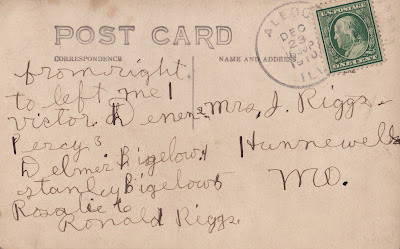 POST CARD
CORRESPONDENCE
NAME AND ADDRESS
DEC
23
1910
ILL
U.S. POSTAGE
ONE CENT
from right
to left me 1
victor
Percy 3
Delmer Bigelow 4
Stanley Bigelow 5
Rosalie 6
Ronald Riggs.
Mrs. J. Riggs
Hunnewell
MO.